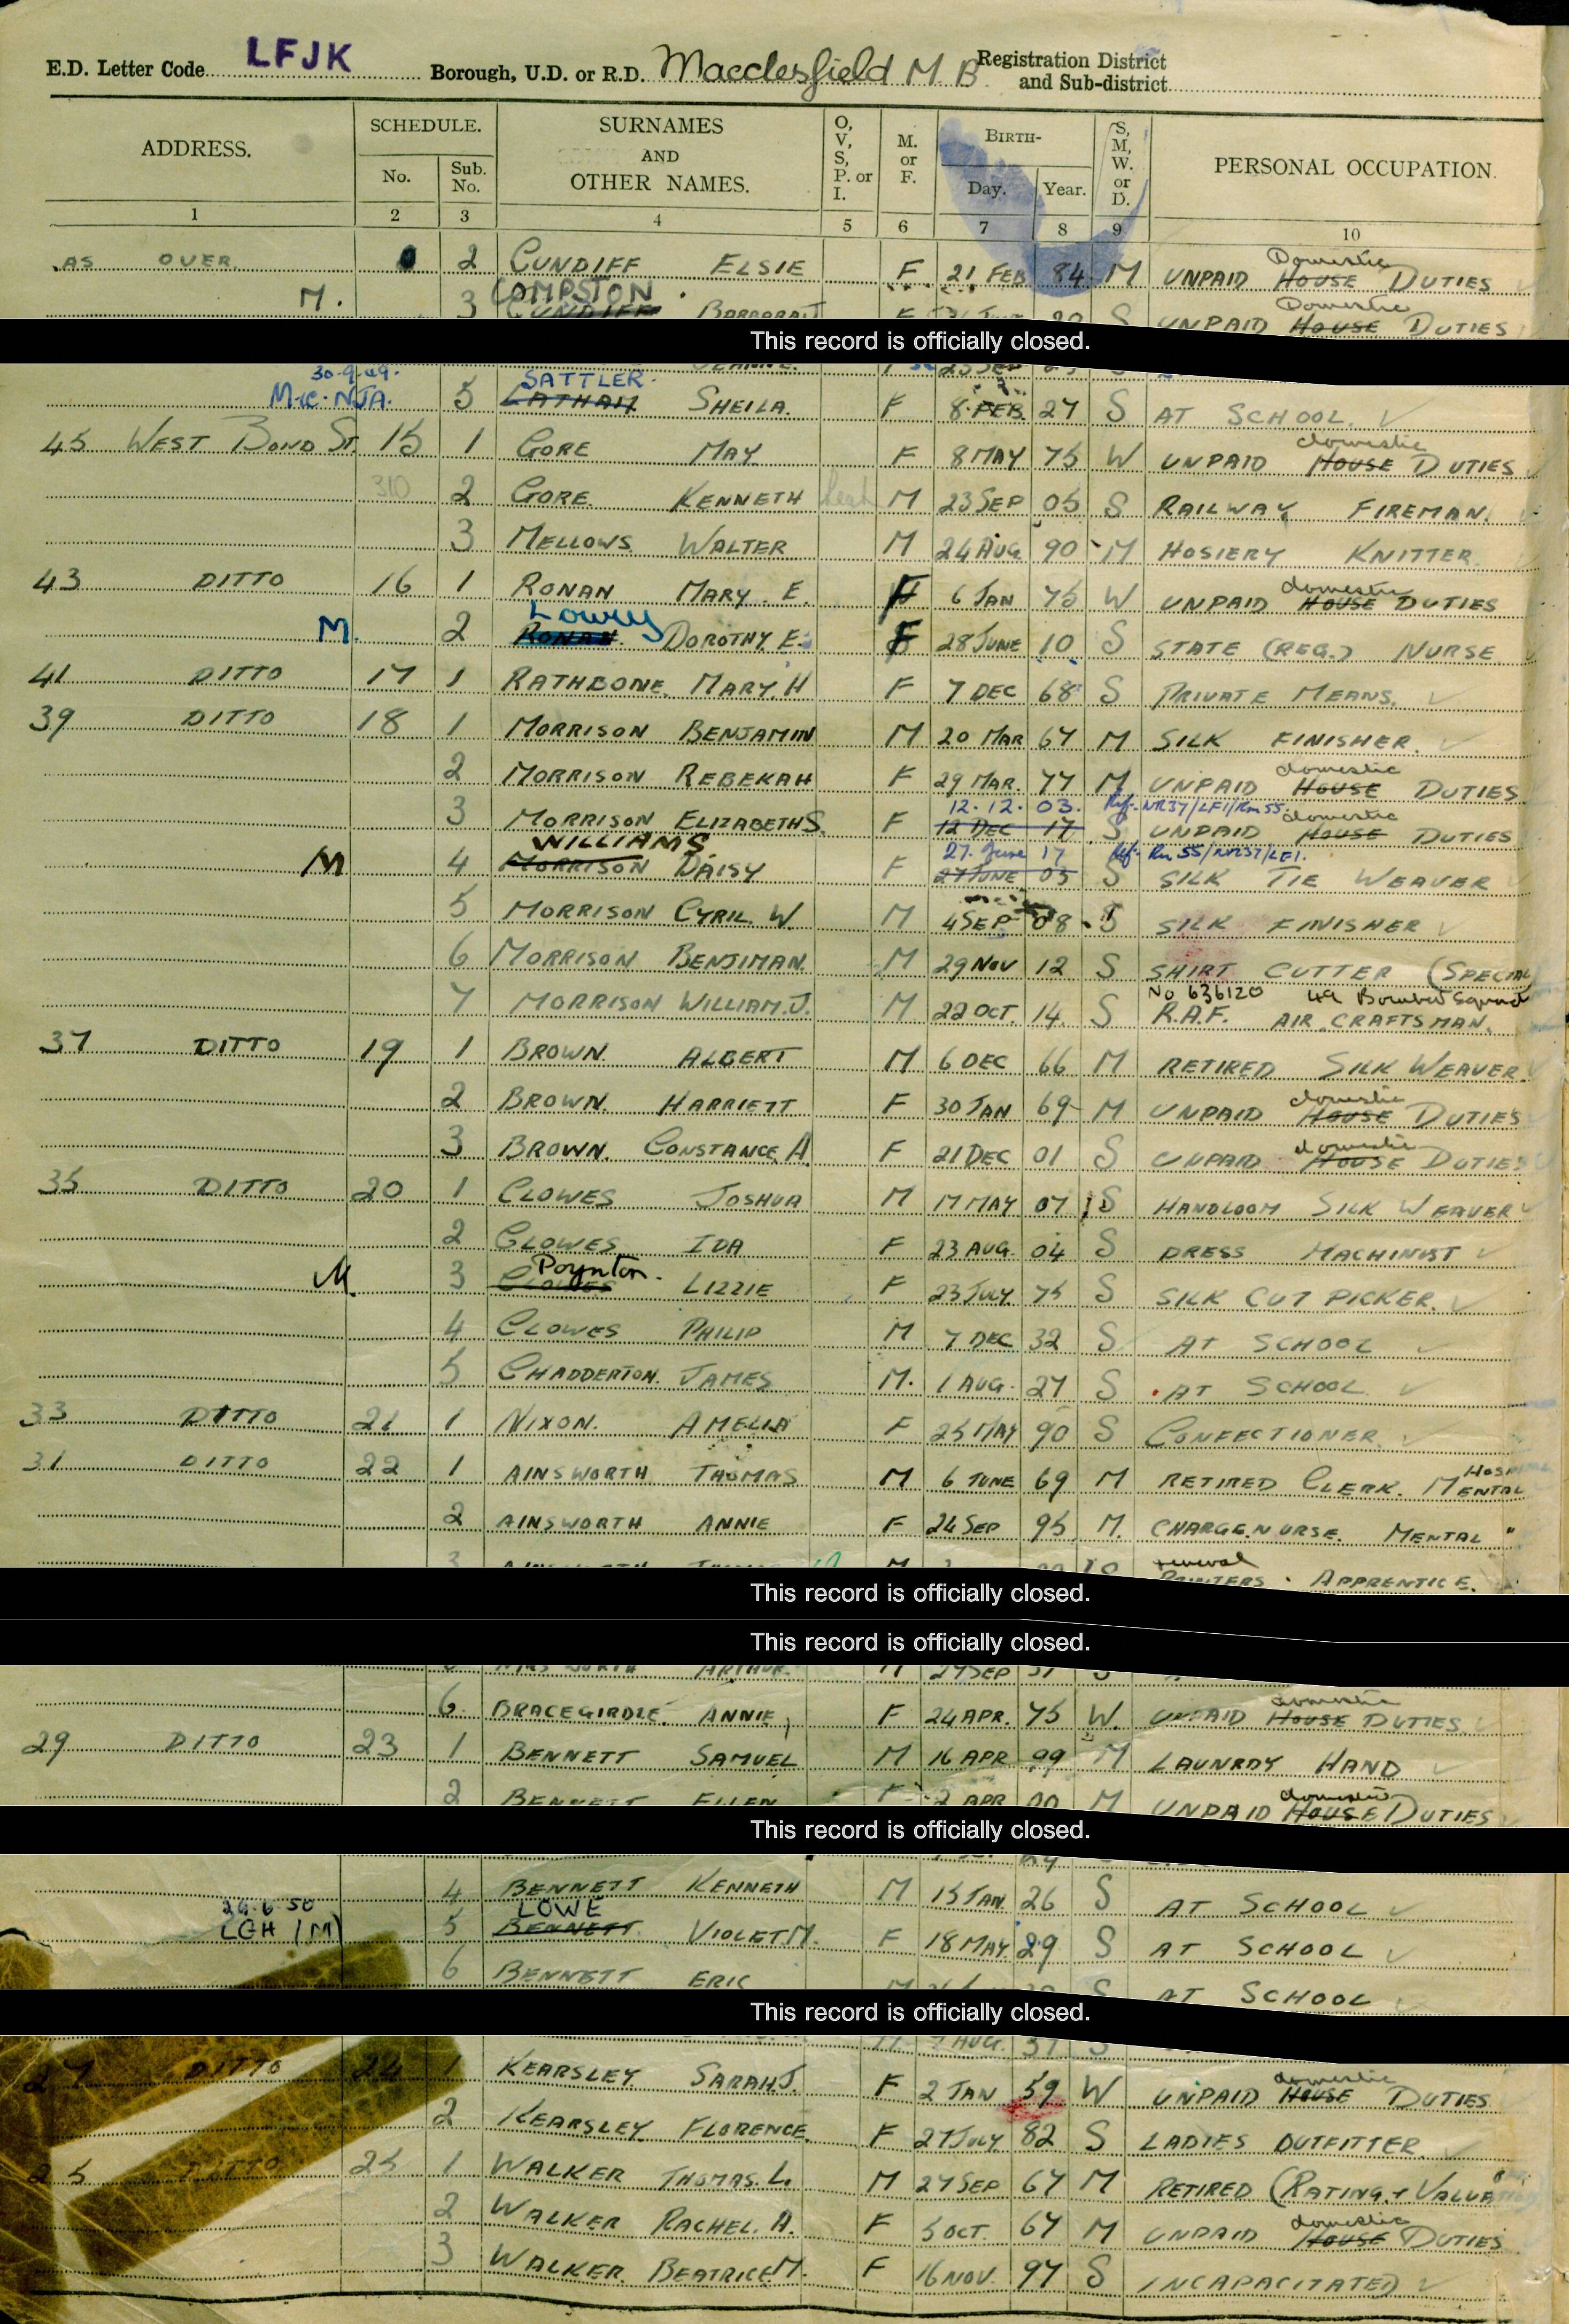 E.D. Letter Code LFJK Borough, U.D. or R.D. Macclesfield M B Registration District and Sub-district
ADDRESS. SCHEDULE. No. Sub. No. SURNAMES AND OTHER NAMES. O, V, S, P. or I. M. or F. BIRTH- Day. Year. S, M, W. or D. PERSONAL OCCUPATION.
1 2 3 4 5 6 7 8 9 10
AS OVER 2 CUNDIFF ELSIE F 21 FEB 84 M UNPAID HOUSE Domestic DUTIES
M. 3 COMPSTON CUNDIFF BARBARA J S UNPAID HOUSE Domestic DUTIES
This record is officially closed.
30-9-49. Mic. NJA. 5 SATTLER LATHAM SHEILA. F 8 FEB 27 S AT SCHOOL.
45 WEST BOND ST. 15 1 GORE MAY F 8 MAY 75 W UNPAID HOUSE domestic DUTIES
310 2 GORE. KENNETH M 23 SEP 05 S RAILWAY FIREMAN.
3 MELLOWS WALTER M 24 AUG 90 M HOSIERY KNITTER
43 DITTO 16 1 RONAN MARY. E. F 6 JAN 75 W UNPAID HOUSE domestic DUTIES
M. 2 Lowry RONAN. DOROTHY E. F 28 JUNE 10 S STATE (REG.) NURSE
41 DITTO 17 1 RATHBONE. MARY. H F 7 DEC 68 S PRIVATE MEANS.
39 DITTO 18 1 MORRISON BENJAMIN M 20 MAR 67 M SILK FINISHER.
2 MORRISON REBEKAH F 29 MAR. 77 M UNPAID HOUSE domestic DUTIES
3 MORRISON ELIZABETH S. F 12.12.03. 12 DEC 17 Ref. NR37/LF1/Rm 55. S UNPAID HOUSE domestic DUTIES
M 4 WILLIAMS MORRISON DAISY F 27. June 17 27 JUNE 03 Ref. Rm 55/NR37/LF1. S SILK TIE WEAVER
5 MORRISON CYRIL. W. M 4 SEP 08 S SILK FINISHER
6 MORRISON BENJIMAN. M 29 NOV 12 S SHIRT CUTTER (SPECIAL
7 MORRISON WILLIAM. J. M 22 OCT. 14. S No 636120 49 Bomber Squad R.A.F. AIR CRAFTSMAN.
37 DITTO 19 1 BROWN. ALBERT M 6 DEC 66 M RETIRED SILK WEAVER.
2 BROWN. HARRIETT F 30 JAN 69 M UNPAID HOUSE domestic DUTIES
3 BROWN. CONSTANCE. A. F 21 DEC 01 S UNPAID HOUSE domestic DUTIES
35 DITTO 20 1 CLOWES JOSHUA M 17 MAY 07 S HANDLOOM SILK WEAVER
2 CLOWES IDA F 23 AUG. 04 S DRESS MACHINIST
M. 3 Poynton. CLOWES LIZZIE F 23 JULY 75 S SILK CUT PICKER.
4 CLOWES PHILIP M 7 DEC 32 S AT SCHOOL
5 CHADDERTON. JAMES M. 1 AUG. 27 S AT SCHOOL
33 DITTO 21 1 NIXON. AMELIA F 25 MAY 90 S CONFECTIONER.
31 DITTO 22 1 AINSWORTH THOMAS M 6 JUNE 69 M RETIRED CLERK. MENTAL
2 AINSWORTH ANNIE F 24 SEP 95 M. CHARGE. NURSE. MENTAL "
3 PRINTERS APPRENTICE.
This record is officially closed.
This record is officially closed.
ARTHUR. 27 SEP 31
6. BRACEGIRDLE. ANNIE F 24 APR. 75 W. UNPAID HOUSE domestic DUTIES
29 DITTO 23 1 BENNETT SAMUEL M 16 APR 99 M LAUNRDY HAND
2 BENNETT ELLEN F 2 APR 00 M UNPAID HOUSE domestic DUTIES
This record is officially closed.
4 BENNETT KENNETH M 15 JAN. 26 S AT SCHOOL
29.6.50 LGH (M) 5 LOWE BENNETT VIOLET. M. F 18 MAY 29 S AT SCHOOL
6 BENNETT ERIC S AT SCHOOL
This record is officially closed.
7 AUG. 37 S
27 DITTO 24 1 KEARSLEY SARAH. J. F 2 JAN 59 W UNPAID HOUSE domestic DUTIES
2 KEARSLEY FLORENCE. F 27 JULY 82 S LADIES OUTFITTER.
25 DITTO 25 1 WALKER THOMAS. L. M 27 SEP 67 M RETIRED (RATING &
2 WALKER RACHEL. A. F 5 OCT. 67 M UNPAID HOUSE domestic DUTIES
3 WALKER. BEATRICE. M. F 16 NOV. 97 S INCAPACITATED